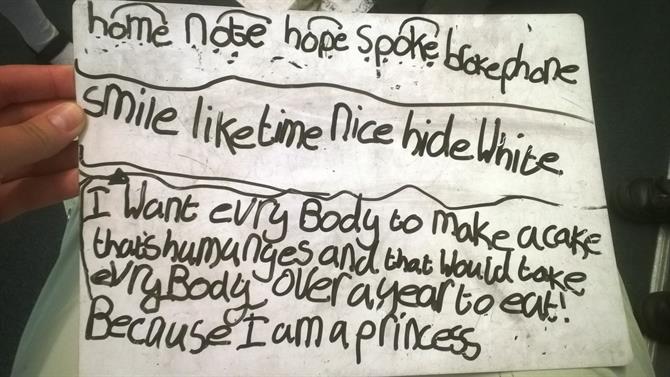 home note hope spoke broke phone
smile like time nice hide White
I Want evry Body to make a cake
that's humunges and that Would take
evry Body over a year to eat!
Because I am a princess